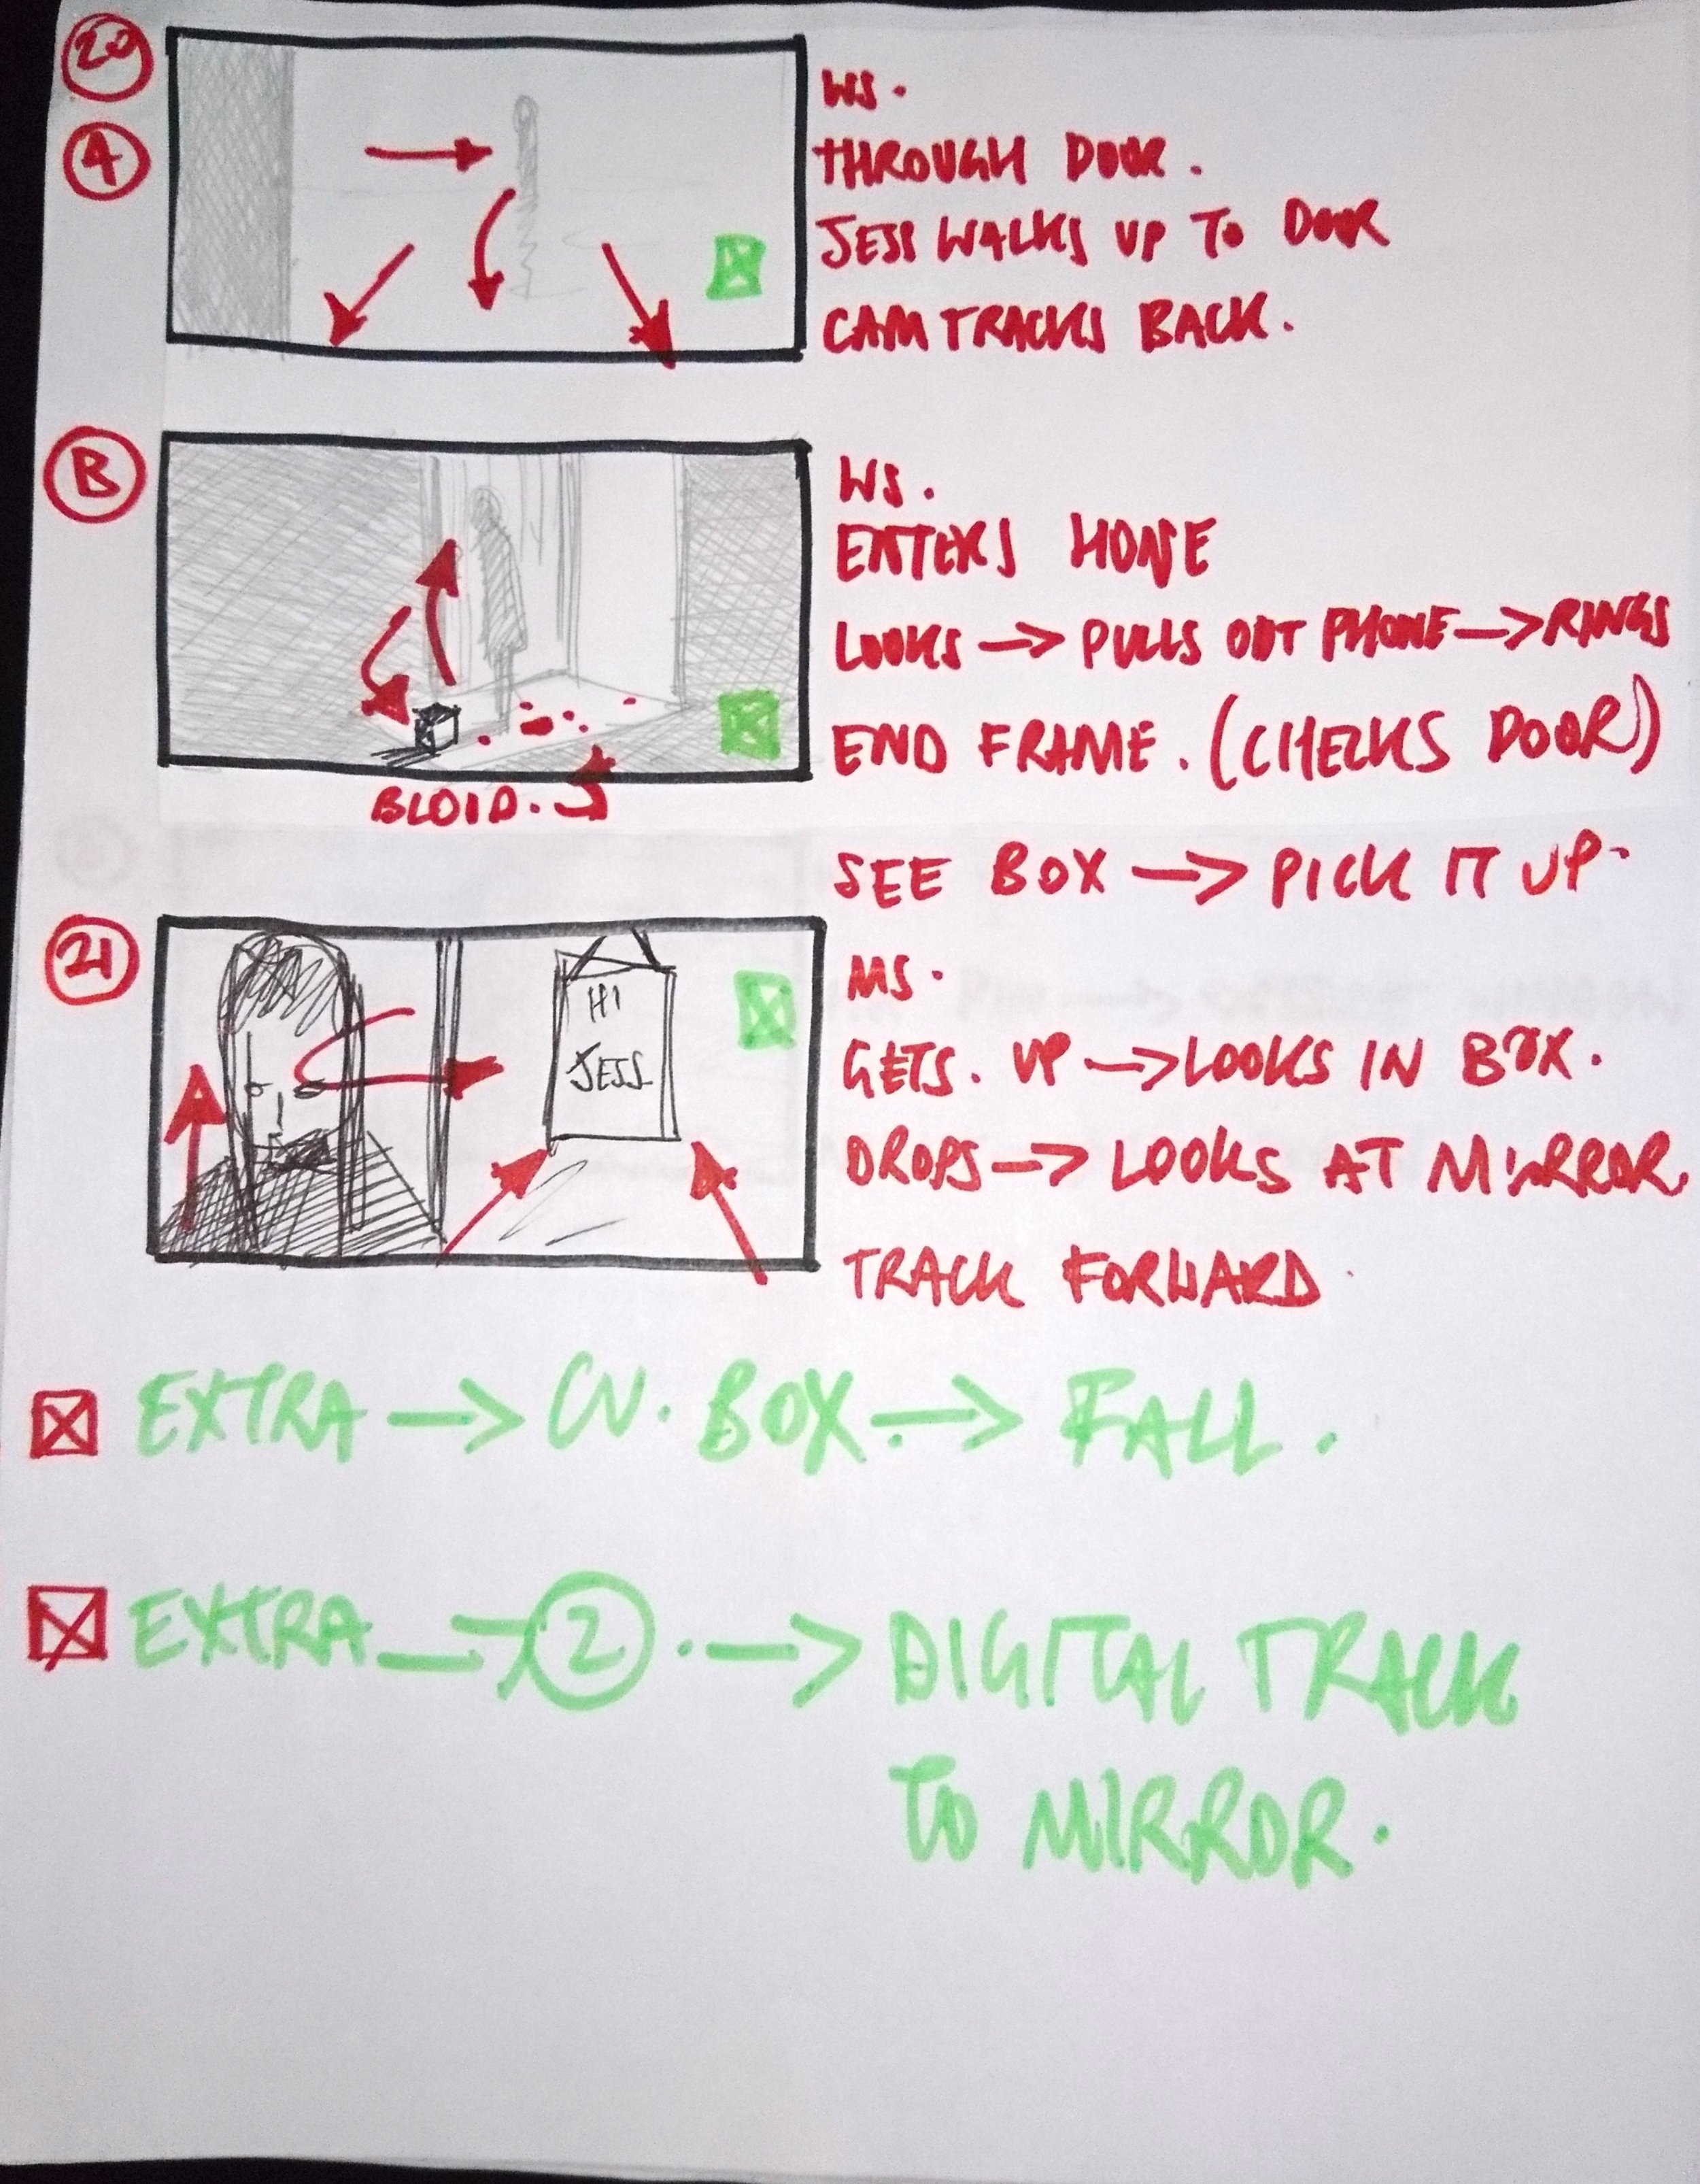 20
A
WS.
THROUGH DOOR.
JESS WALKS UP TO DOOR
CAM TRACKS BACK.
B
WS.
ENTERS HOUSE
LOOKS → PULLS OUT PHONE → RINGS
END FRAME. (CHECKS DOOR)
BLOOD.
SEE BOX → PICK IT UP.
21
HI
JESS
MS.
GETS. UP → LOOKS IN BOX.
DROPS → LOOKS AT MIRROR.
TRACK FORWARD
EXTRA → CU. BOX. → FALL.
EXTRA → 2. → DIGITAL TRACK
TO MIRROR.